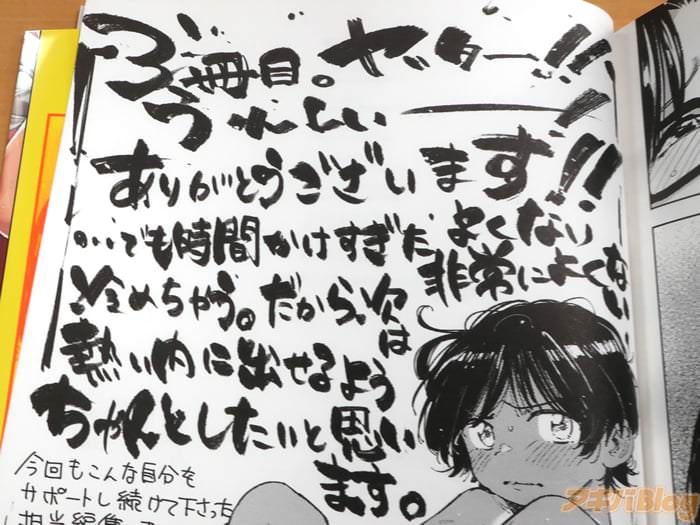 3冊目。ヤッター!!
うれしい
ありがとうございます!!
でも時間かけすぎた よくない
非常によくない
冷めちゃう。だから、次は
熱い内に出せるよう
ちゃんとしたいと思い
ます。
今回もこんな自分を
サポートし続けて下さった
担当編集
アキバBlog